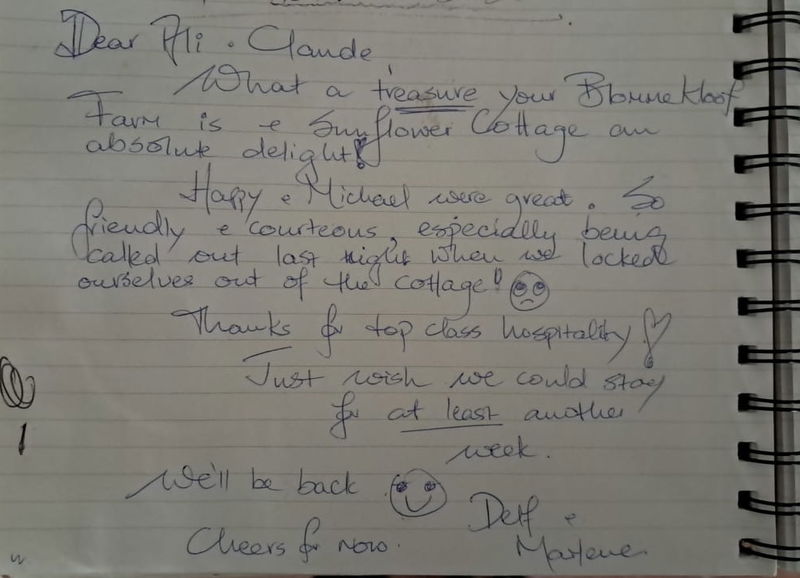 Dear Ali e Claude,
What a treasure your Blommekloof
Farm is e Sunflower Cottage an
absolute delight!
Happy e Michael were great. So
friendly e courteous, especially being
called out last night when we locked
ourselves out of the cottage!!
Thanks for top class hospitality!
Just wish we could stay
for at least another
week.
We'll be back
Cheers for now.
Detf e
Marlene